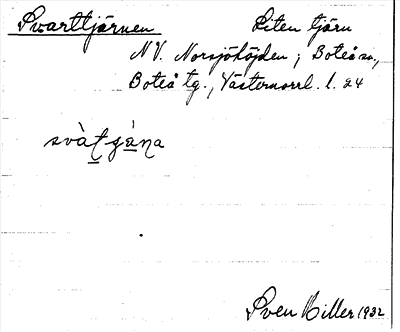 Svarttjärnen Liten tjärn
NV. Norsjöhöjden; Boteå sn.,
Boteå tg., Västernorrl. l. 24
svàtgàna
Sven Hiller 1932